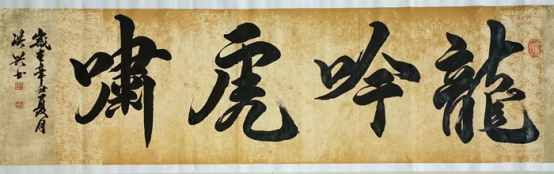 龍吟虎嘯
歲在辛丑夏月
洪興書